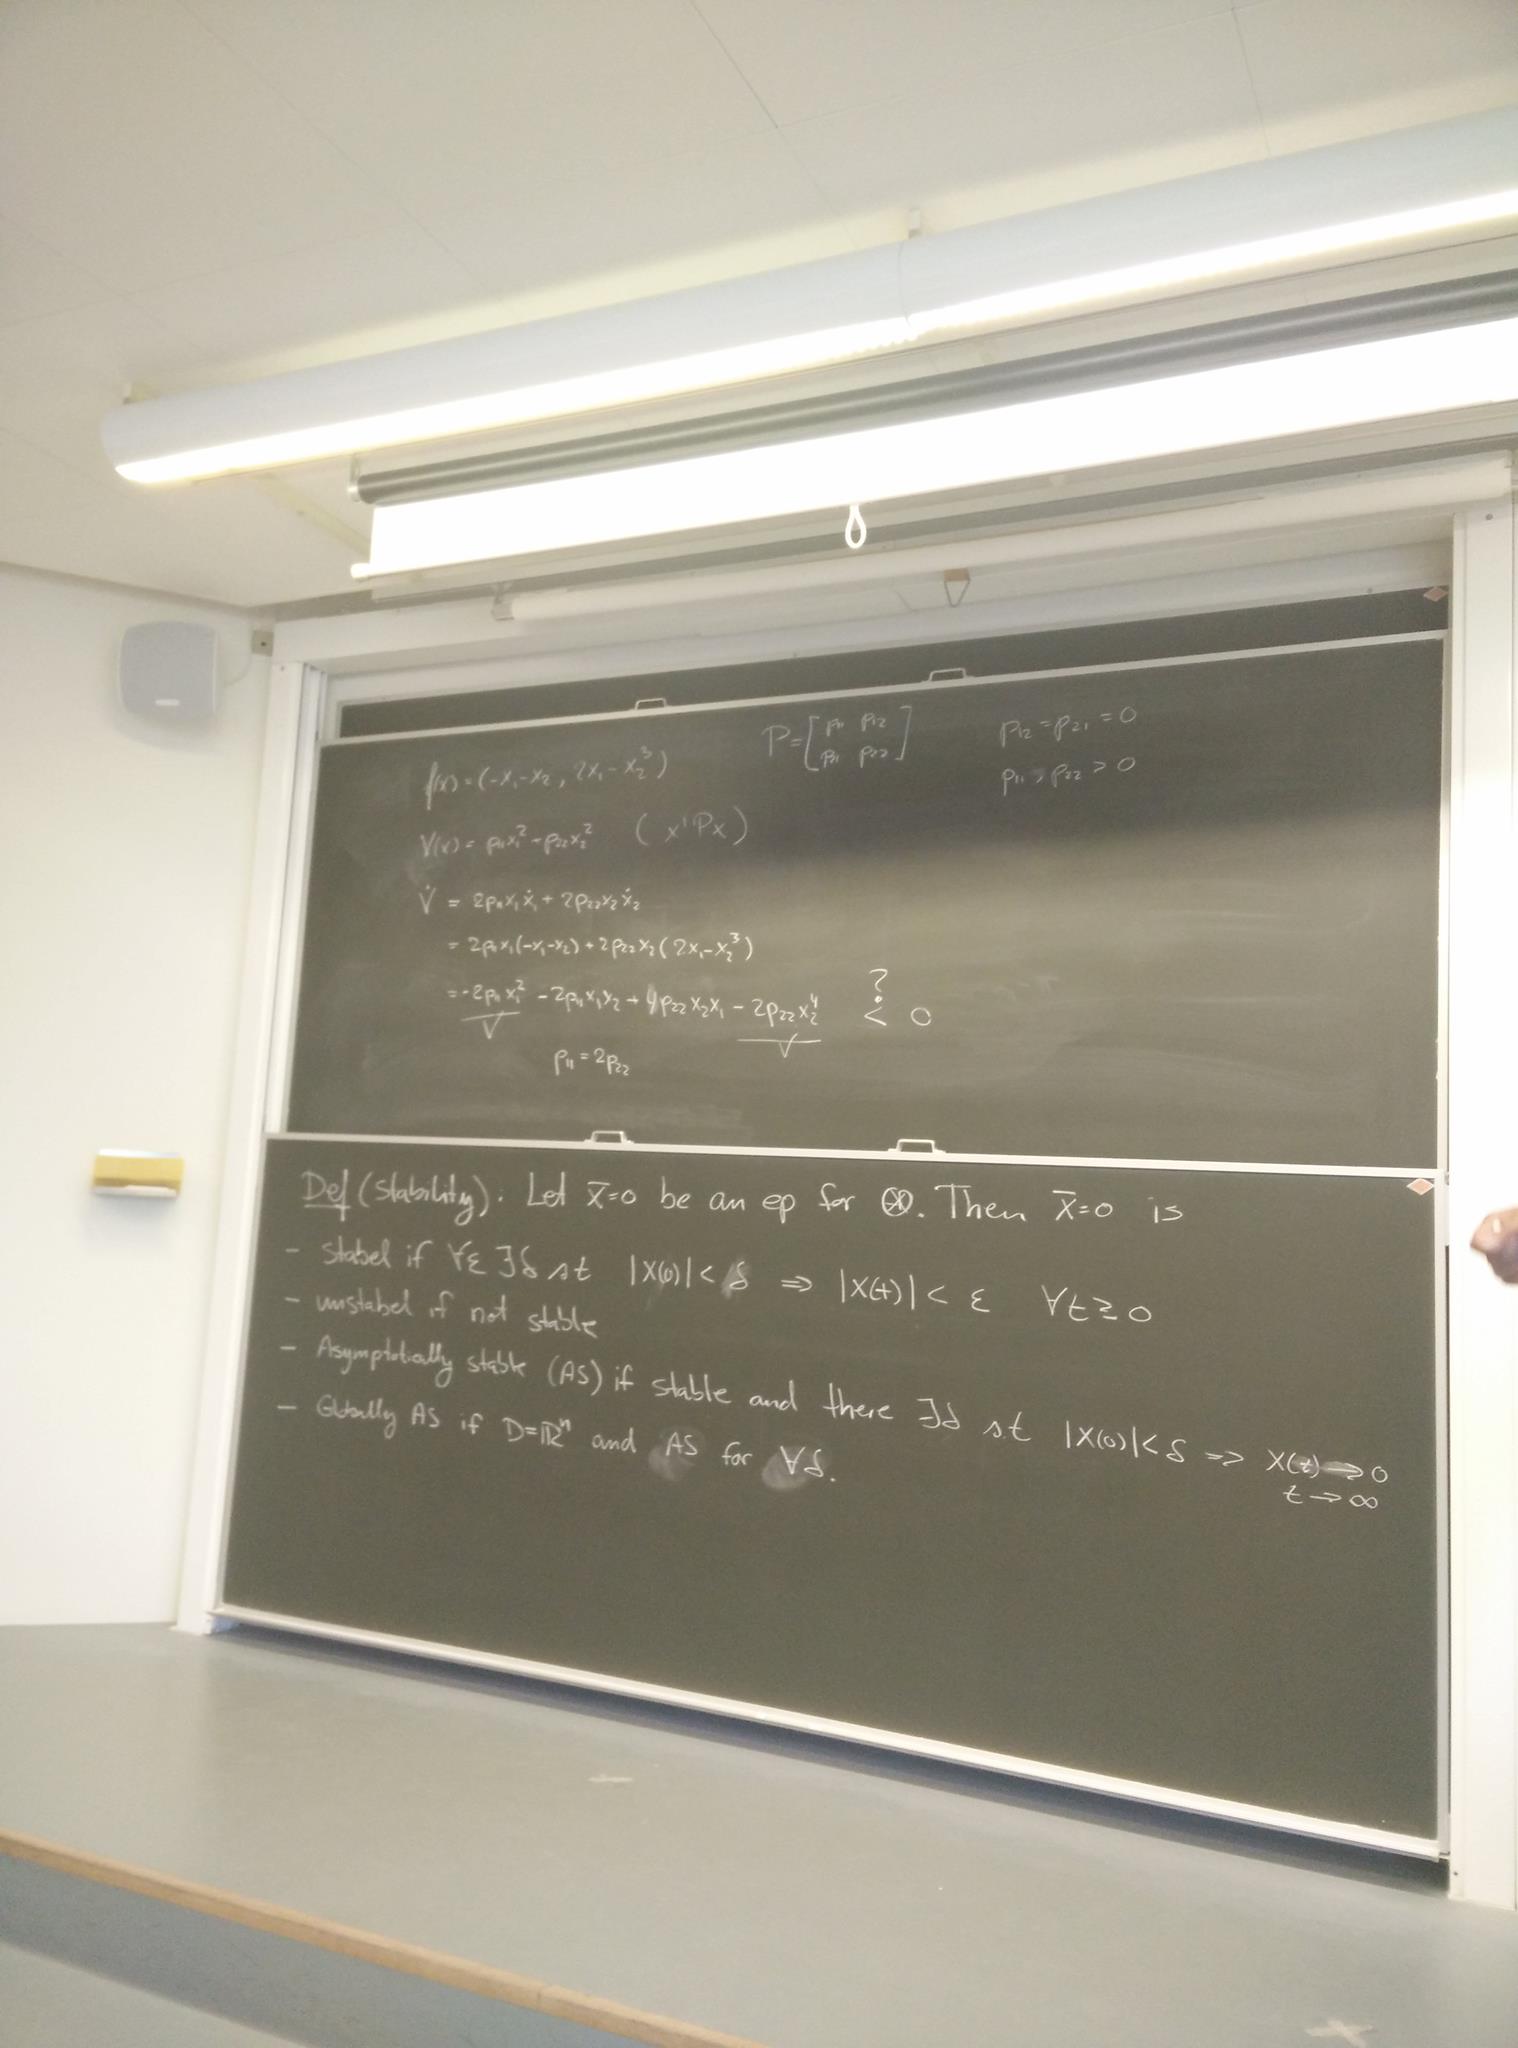 f(x) = (-x₁-x₂, 2x₁-x₂³)
P = [p₁₁ p₁₂
p₂₁ p₂₂]
p₁₂ = p₂₁ = 0
p₁₁, p₂₂ > 0
V(x) = p₁₁x₁² + p₂₂x₂² (x'Px)
V̇ = 2p₁₁x₁ẋ₁ + 2p₂₂x₂ẋ₂
= 2p₁₁x₁(-x₁-x₂) + 2p₂₂x₂(2x₁-x₂³)
= -2p₁₁x₁² - 2p₁₁x₁x₂ + 4p₂₂x₂x₁ - 2p₂₂x₂⁴ <? 0
√ √
p₁₁ = 2p₂₂
Def (stability): Let x̄=0 be an ep for ⊛. Then x̄=0 is
- stabel if ∀ε ∃δ st |x(0)| < δ ⇒ |x(t)| < ε ∀t ≥ 0
- unstabel if not stable
- Asymptotically stable (AS) if stable and there ∃δ s.t |x(0)| < δ ⇒ x(t) → 0
t → ∞
- Globally AS if D=ℝⁿ and AS for ∀δ.